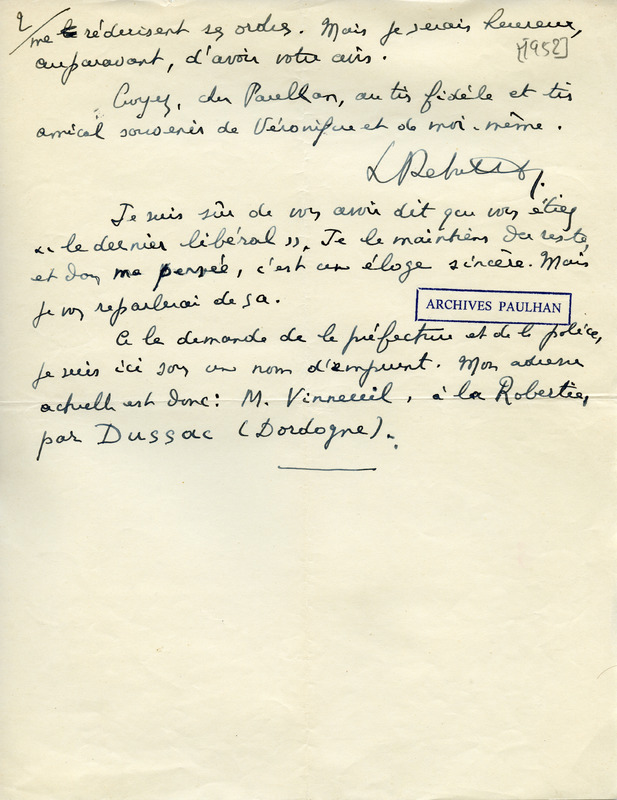 2/
me réduisent ses ordres. Mais je serais heureux,
[1952]
auparavant, d'avoir votre avis.
Croyez, cher Paulhan, au très fidèle et très
amical souvenir de Véronique et de moi-même.
L Rebatet
Je suis sûr de vous avoir dit que vous étiez
« le dernier libéral ». Je le maintiens du reste,
et dans ma pensée, c'est un éloge sincère. Mais
je vous reparlerai de ça.
ARCHIVES PAULHAN
A la demande de la préfecture et de la police,
je suis ici sous un nom d'emprunt. Mon adresse
actuelle est donc : M. Vinneuil, à la Robertie,
par Dussac (Dordogne).